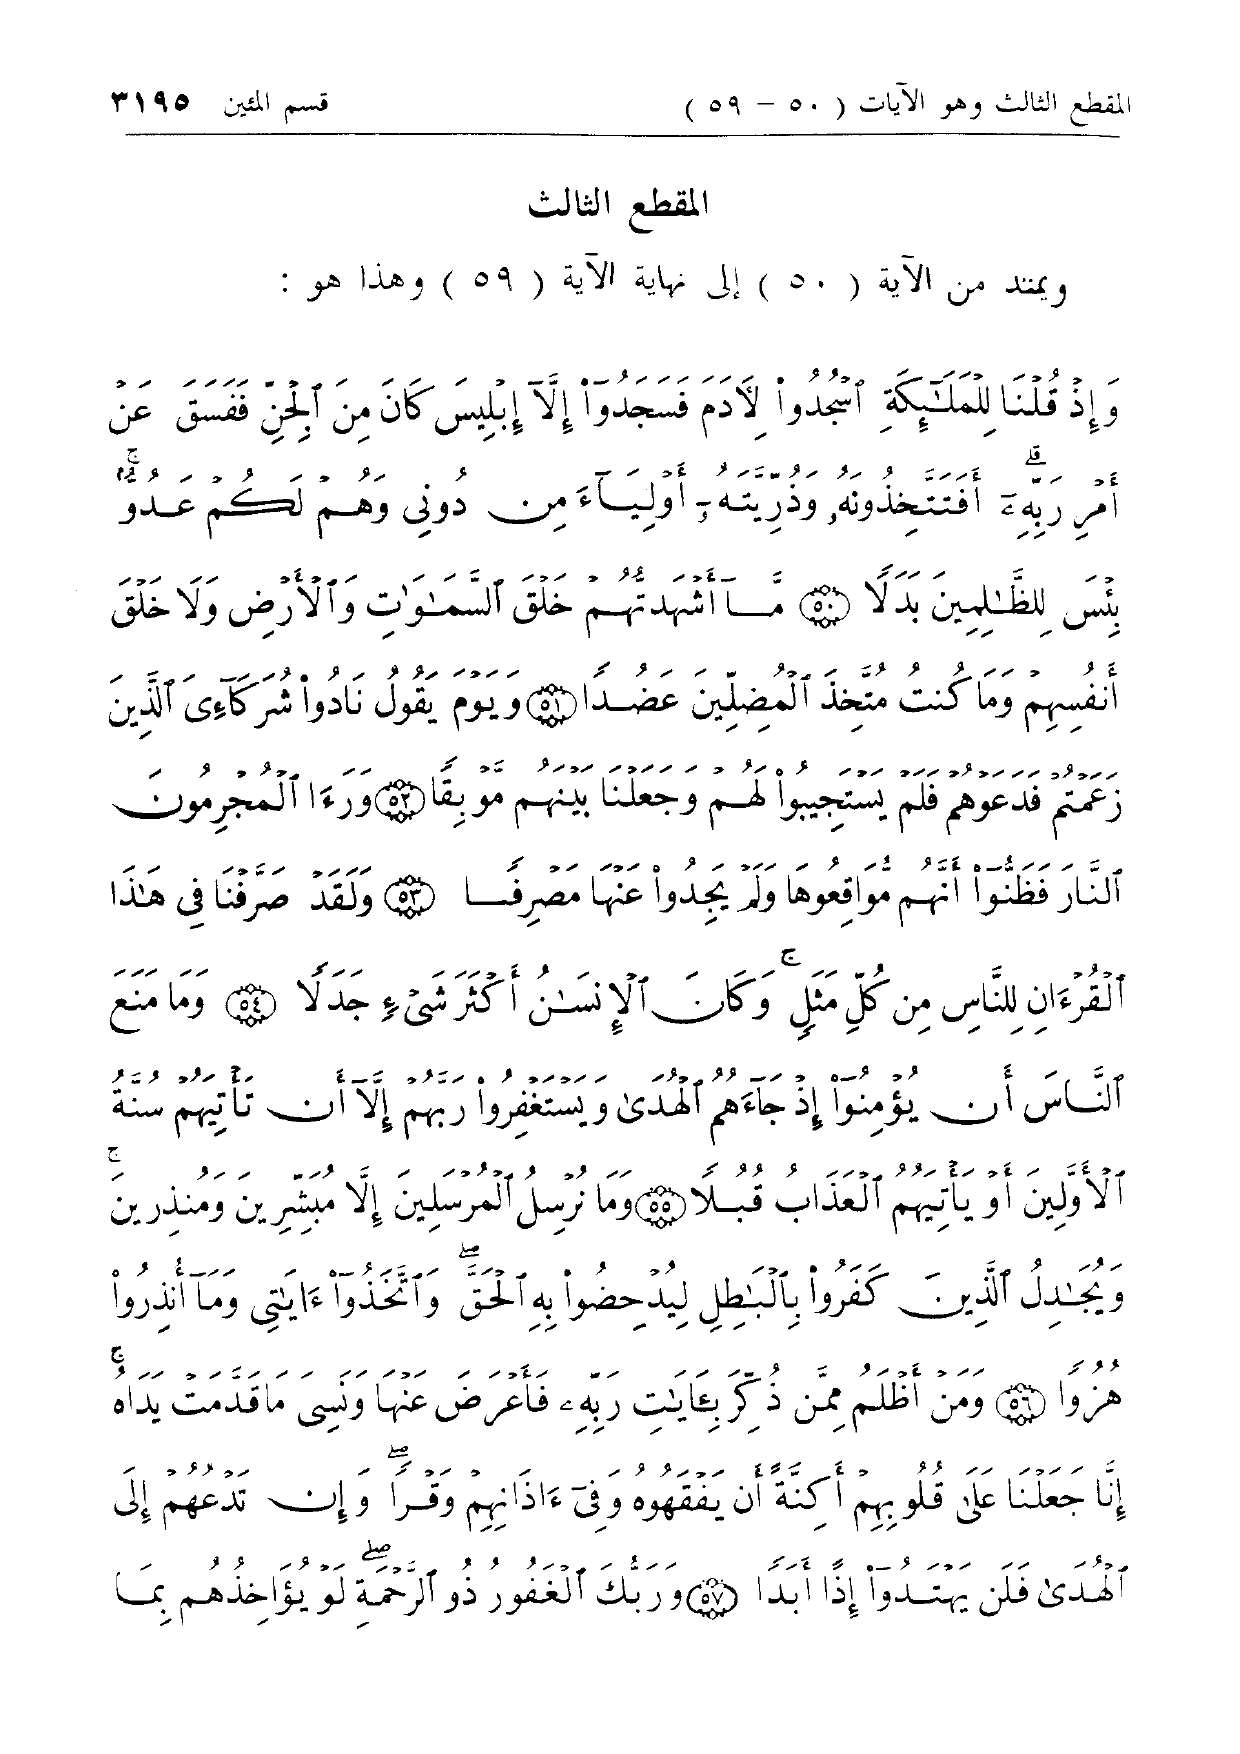 المقطع الثالث وهو الآيات ( ٥٠ – ٥٩ ) قسم المئين ٣١٩٥
المقطع الثالث
ويمتد من الآية ( ٥٠ ) إلى نهاية الآية ( ٥٩ ) وهذا هو :
وَإِذْ قُلْنَا لِلْمَلَٰٓئِكَةِ ٱسْجُدُوا۟ لِأَدَمَ فَسَجَدُوٓا۟ إِلَّآ إِبْلِيسَ كَانَ مِنَ ٱلْجِنِّ فَفَسَقَ عَنْ
أَمْرِ رَبِّهِۦٓ ۗ أَفَتَتَّخِذُونَهُۥ وَذُرِّيَّتَهُۥٓ أَوْلِيَآءَ مِن دُونِى وَهُمْ لَكُمْ عَدُوٌّۢ ۚ
بِئْسَ لِلظَّٰلِمِينَ بَدَلًا ﴿٥٠﴾ مَّآ أَشْهَدتُّهُمْ خَلْقَ ٱلسَّمَٰوَٰتِ وَٱلْأَرْضِ وَلَا خَلْقَ
أَنفُسِهِمْ وَمَا كُنتُ مُتَّخِذَ ٱلْمُضِلِّينَ عَضُدًا ﴿٥١﴾ وَيَوْمَ يَقُولُ نَادُوا۟ شُرَكَآءِىَ ٱلَّذِينَ
زَعَمْتُمْ فَدَعَوْهُمْ فَلَمْ يَسْتَجِيبُوا۟ لَهُمْ وَجَعَلْنَا بَيْنَهُم مَّوْبِقًا ﴿٥٢﴾ وَرَءَا ٱلْمُجْرِمُونَ
ٱلنَّارَ فَظَنُّوٓا۟ أَنَّهُم مُّوَاقِعُوهَا وَلَمْ يَجِدُوا۟ عَنْهَا مَصْرِفًا ﴿٥٣﴾ وَلَقَدْ صَرَّفْنَا فِى هَٰذَا
ٱلْقُرْءَانِ لِلنَّاسِ مِن كُلِّ مَثَلٍ ۚ وَكَانَ ٱلْإِنسَٰنُ أَكْثَرَ شَىْءٍ جَدَلًا ﴿٥٤﴾ وَمَا مَنَعَ
ٱلنَّاسَ أَن يُؤْمِنُوٓا۟ إِذْ جَآءَهُمُ ٱلْهُدَىٰ وَيَسْتَغْفِرُوا۟ رَبَّهُمْ إِلَّآ أَن تَأْتِيَهُمْ سُنَّةُ
ٱلْأَوَّلِينَ أَوْ يَأْتِيَهُمُ ٱلْعَذَابُ قُبُلًا ﴿٥٥﴾ وَمَا نُرْسِلُ ٱلْمُرْسَلِينَ إِلَّا مُبَشِّرِينَ وَمُنذِرِينَ ۚ
وَيُجَٰدِلُ ٱلَّذِينَ كَفَرُوا۟ بِٱلْبَٰطِلِ لِيُدْحِضُوا۟ بِهِ ٱلْحَقَّ ۖ وَٱتَّخَذُوٓا۟ ءَايَٰتِى وَمَآ أُنذِرُوا۟
هُزُوًا ﴿٥٦﴾ وَمَنْ أَظْلَمُ مِمَّن ذُكِّرَ بِـَٔايَٰتِ رَبِّهِۦ فَأَعْرَضَ عَنْهَا وَنَسِىَ مَا قَدَّمَتْ يَدَاهُ ۚ
إِنَّا جَعَلْنَا عَلَىٰ قُلُوبِهِمْ أَكِنَّةً أَن يَفْقَهُوهُ وَفِىٓ ءَاذَانِهِمْ وَقْرًا ۖ وَإِن تَدْعُهُمْ إِلَى
ٱلْهُدَىٰ فَلَن يَهْتَدُوٓا۟ إِذًا أَبَدًا ﴿٥٧﴾ وَرَبُّكَ ٱلْغَفُورُ ذُو ٱلرَّحْمَةِ ۖ لَوْ يُؤَاخِذُهُم بِمَا